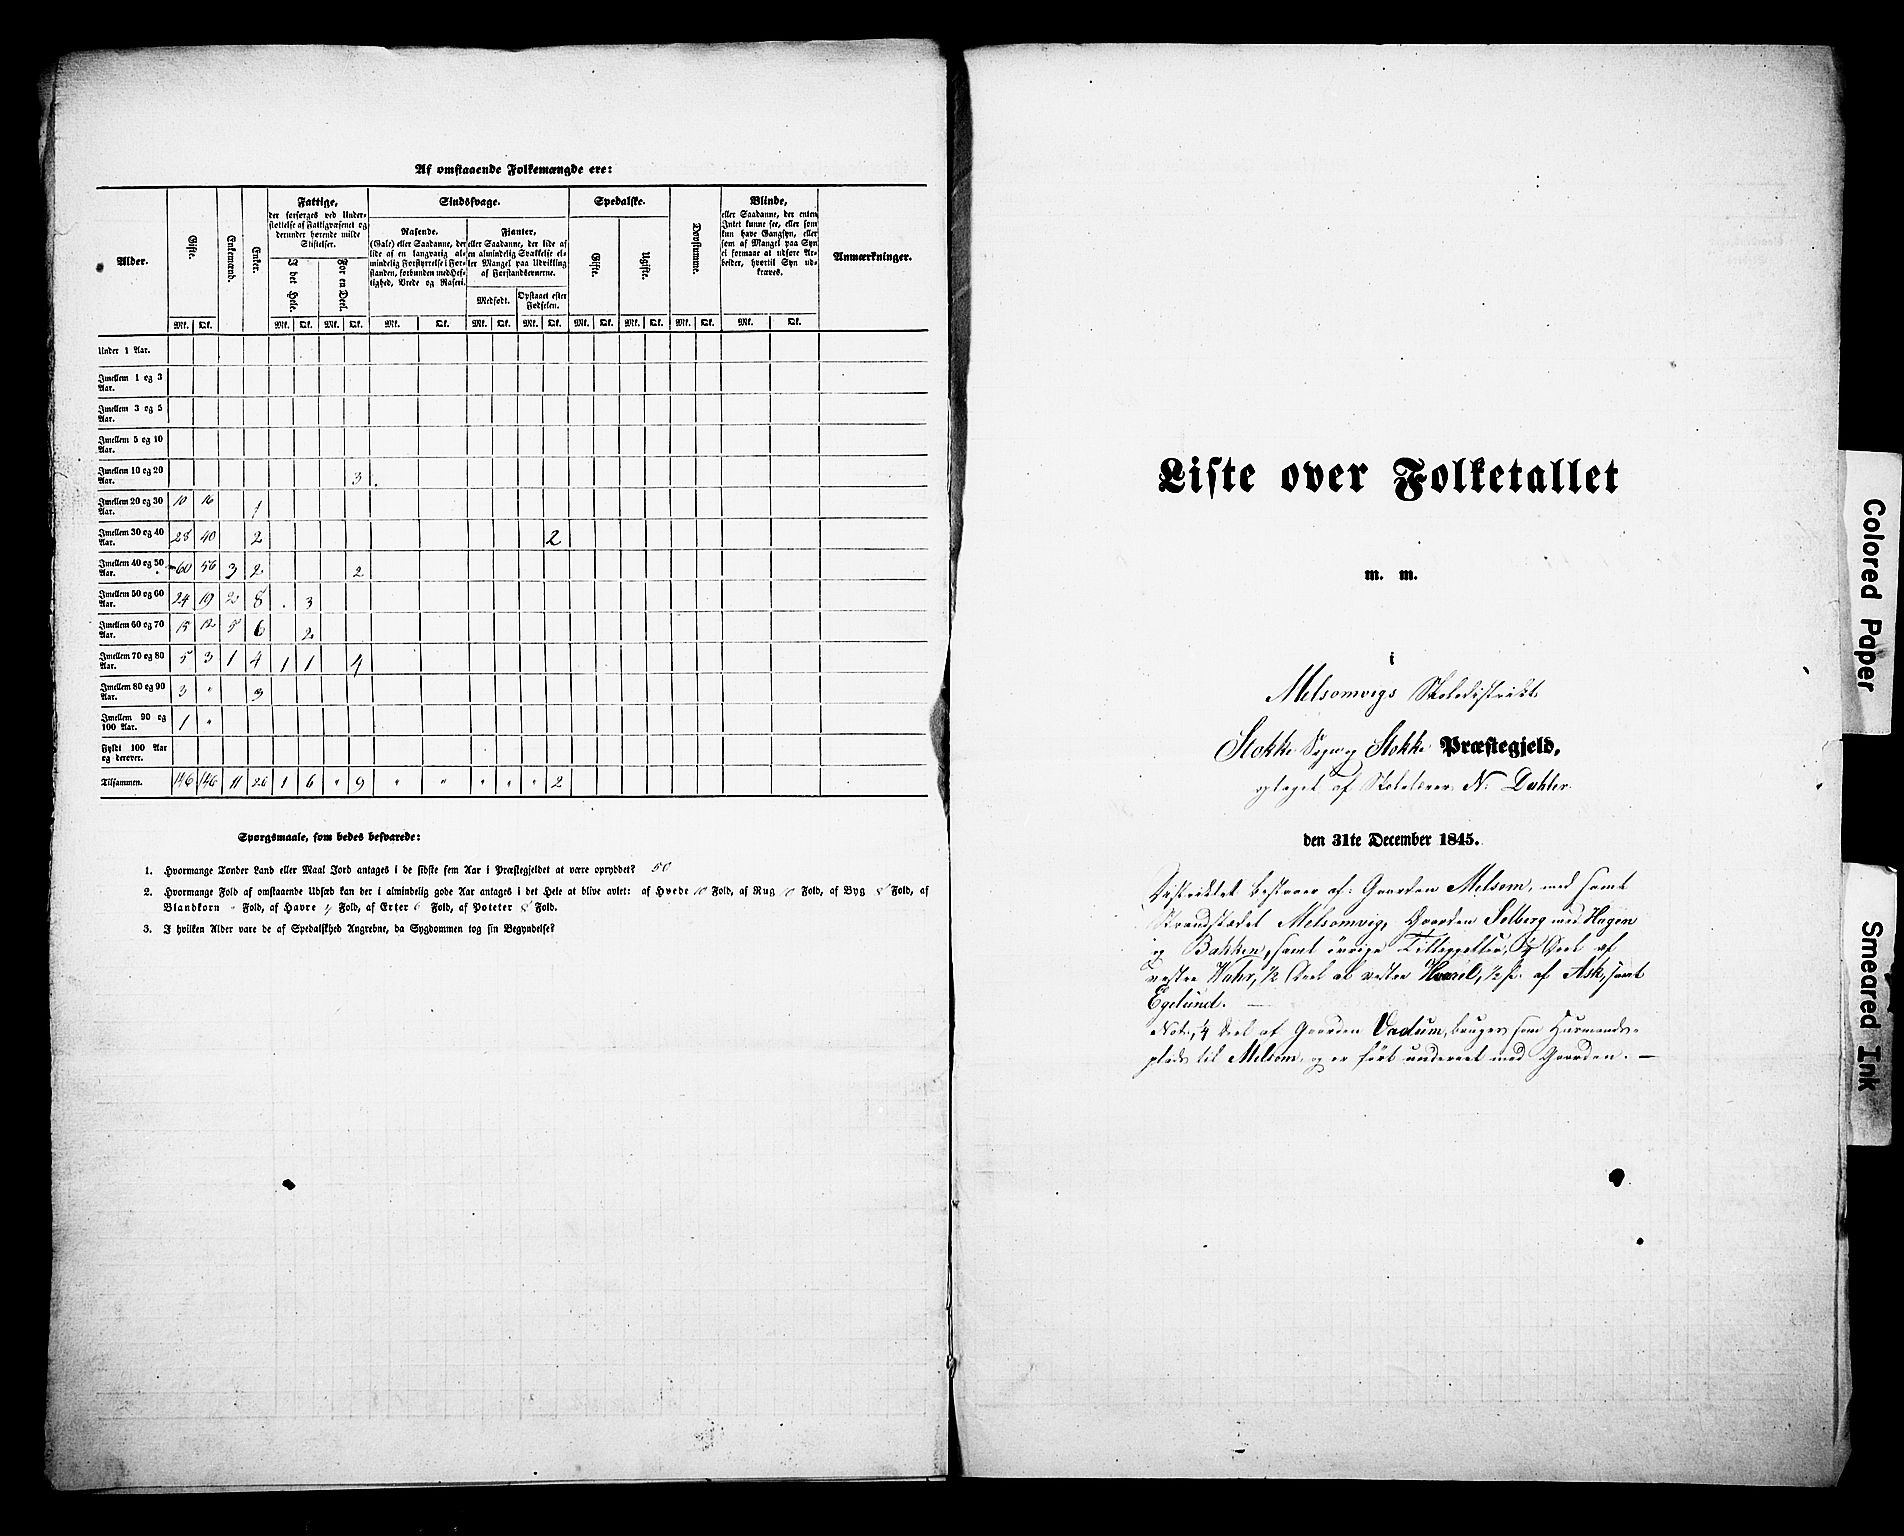 Af omstaaende Folkemængde ere:
Alder.
Gifte.
Enkemænd.
Enker.
Fattige,
der forsørges ved Under-
støttelse af Fattigvæsenet og
derunder hørende milde
Stiftelser.
I det Hele.
For en Deel.
Sindssvage.
Rasende.
(Gale) eller Saadanne, der
lide af en langvarig al-
mindelig Forstyrrelse i For-
standen, forbunden med Hef-
tighed, Vrede og Raseri.
Fjanter,
eller Saadanne, der lide af
en almindelig Svækkelse el-
ler Mangel paa Udvikling
af Forstandsevnerne.
Medfødt.
Opstaaet efter
Fødselen.
Spedalske.
Gifte.
Ugifte.
Døvstumme.
Blinde,
eller Saadanne, der enten
Intet kunne see, eller som
kun have Gangsyn, eller
som af Mangel paa Syn
ei formaae at udføre Ar-
beider, hvortil Syn ud-
kræves.
Anmærkninger.
Mk. Qk. Mk. Qk. Mk. Qk. Mk. Qk. Mk. Qk. Mk. Qk. Mk. Qk. Mk. Qk. Mk. Qk. Mk. Qk.
Under 1 Aar.
Imellem 1 og 3
Aar.
Imellem 3 og 5
Aar.
Imellem 5 og 10
Aar.
Imellem 10 og 20
Aar. 3
Imellem 20 og 30 10 16 1
Aar.
Imellem 30 og 40 28 40 2 2
Aar.
Imellem 40 og 50 60 56 3 2 2
Aar.
Imellem 50 og 60 24 19 2 8 . 3
Aar.
Imellem 60 og 70 15 12 5 6 2
Aar.
Imellem 70 og 80 5 3 1 4 1 1 4
Aar.
Imellem 80 og 90 3 " 3
Aar.
Imellem 90 og 1 "
100 Aar.
Fyldt 100 Aar
og derover.
Tilsammen. 146 146 11 26 1 6 " 9 " " " " " 2
Spørgsmaale, som bedes besvarede:
1. Hvormange Tønder Land eller Maal Jord antages i de sidste fem Aar i Præstegjeldet at være opryddet? 50
2. Hvormange Fold af omstaaende Udsæd kan der i almindelig gode Aar antages i det Hele at blive avlet: af Hvede 10 Fold, af Rug 10 Fold, af Byg 8 Fold, af
Blandkorn " Fold, af Havre Fold, af Erter 6 Fold, af Poteter 8 Fold.
3. I hvilken Alder vare de af Spedalskhed Angrebne, da Sygdommen tog sin Begyndelse?
Liste over Folketallet
m. m.
i
Melsomvigs Skoledistrikt
Stokke Sogn og Stokke Præstegjeld,
optaget af Skolelærer N. Dahler
den 31te December 1845.
Districtet bestaaer af: Gaarden Melsom, med samt
Strandstædet Melsomvig, Gaarden Solberg med Hagen
og Bakken, samt øvrige Deel af
vestre 1/2 Deel af vestre 1/2 af Ask, samt
Egelund.
Not: 1/4 Deel af Gaarden Vadum, bruges som Huusmands-
plads til Melsom, og erført underet med Gaarden. —
Colored Paper
Smeared Ink